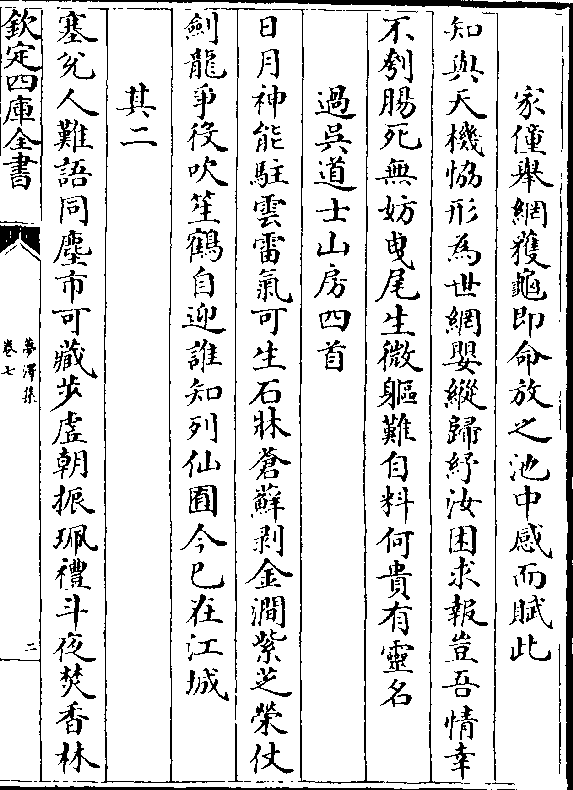 家僮舉網獲龜即命放之池中感而賦此
知與天機恊形為世網嬰縱歸紓汝困求報豈吾情幸
不刳腸死無妨曵尾生微軀難自料何貴有靈名
過吳道士山房四首
日月神能駐雲雷氣可生石牀蒼蘚剥金澗紫芝榮仗
劍龍爭役吹笙鶴自迎誰知列仙囿今已在江城
其二
塞兊人難語同塵市可藏步虛朝振珮禮斗夜焚香林
欽定四庫全書
夢澤集
卷七
二